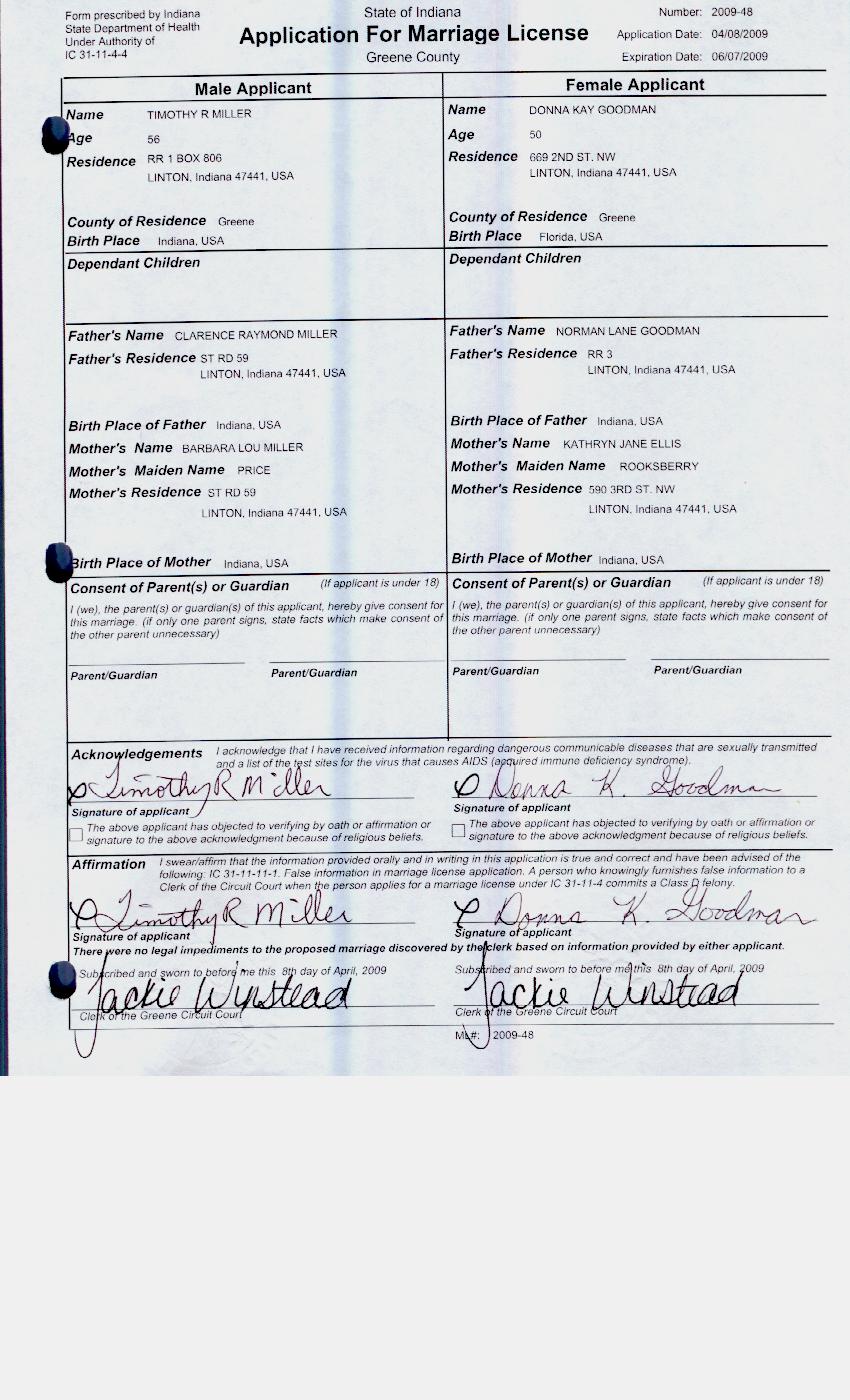 Form prescribed by Indiana
State Department of Health
Under Authority of
IC 31-11-4-4
State of Indiana
Application For Marriage License
Greene County
Number: 2009-48
Application Date: 04/08/2009
Expiration Date: 06/07/2009
Male Applicant
Name TIMOTHY R MILLER
Age 56
Residence RR 1 BOX 806
LINTON, Indiana 47441, USA
County of Residence Greene
Birth Place Indiana, USA
Dependant Children
Father's Name CLARENCE RAYMOND MILLER
Father's Residence ST RD 59
LINTON, Indiana 47441, USA
Birth Place of Father Indiana, USA
Mother's Name BARBARA LOU MILLER
Mother's Maiden Name PRICE
Mother's Residence ST RD 59
LINTON, Indiana 47441, USA
Birth Place of Mother Indiana, USA
Consent of Parent(s) or Guardian (If applicant is under 18)
I (we), the parent(s) or guardian(s) of this applicant, hereby give consent for
this marriage. (if only one parent signs, state facts which make consent of
the other parent unnecessary)
Parent/Guardian Parent/Guardian
Female Applicant
Name DONNA KAY GOODMAN
Age 50
Residence 669 2ND ST. NW
LINTON, Indiana 47441, USA
County of Residence Greene
Birth Place Florida, USA
Dependant Children
Father's Name NORMAN LANE GOODMAN
Father's Residence RR 3
LINTON, Indiana 47441, USA
Birth Place of Father Indiana, USA
Mother's Name KATHRYN JANE ELLIS
Mother's Maiden Name ROOKSBERRY
Mother's Residence 590 3RD ST. NW
LINTON, Indiana 47441, USA
Birth Place of Mother Indiana, USA
Consent of Parent(s) or Guardian (If applicant is under 18)
I (we), the parent(s) or guardian(s) of this applicant, hereby give consent for
this marriage. (if only one parent signs, state facts which make consent of
the other parent unnecessary)
Parent/Guardian Parent/Guardian
Acknowledgements I acknowledge that I have received information regarding dangerous communicable diseases that are sexually transmitted
and a list of the test sites for the virus that causes AIDS (acquired immune deficiency syndrome).
Timothy R Miller
Signature of applicant
The above applicant has objected to verifying by oath or affirmation or
signature to the above acknowledgment because of religious beliefs.
Donna K. Goodman
Signature of applicant
The above applicant has objected to verifying by oath or affirmation or
signature to the above acknowledgment because of religious beliefs.
Affirmation I swear/affirm that the information provided orally and in writing in this application is true and correct and have been advised of the
following: IC 31-11-11-1. False information in marriage license application. A person who knowingly furnishes false information to a
Clerk of the Circuit Court when the person applies for a marriage license under IC 31-11-4 commits a Class D felony.
Timothy R Miller
Signature of applicant
Donna K. Goodman
Signature of applicant
There were no legal impediments to the proposed marriage discovered by the clerk based on information provided by either applicant.
Subscribed and sworn to before me this 8th day of April, 2009
Jackie Winstead
Clerk of the Greene Circuit Court
Subscribed and sworn to before me this 8th day of April, 2009
Jackie Winstead
Clerk of the Greene Circuit Court
ML#: 2009-48